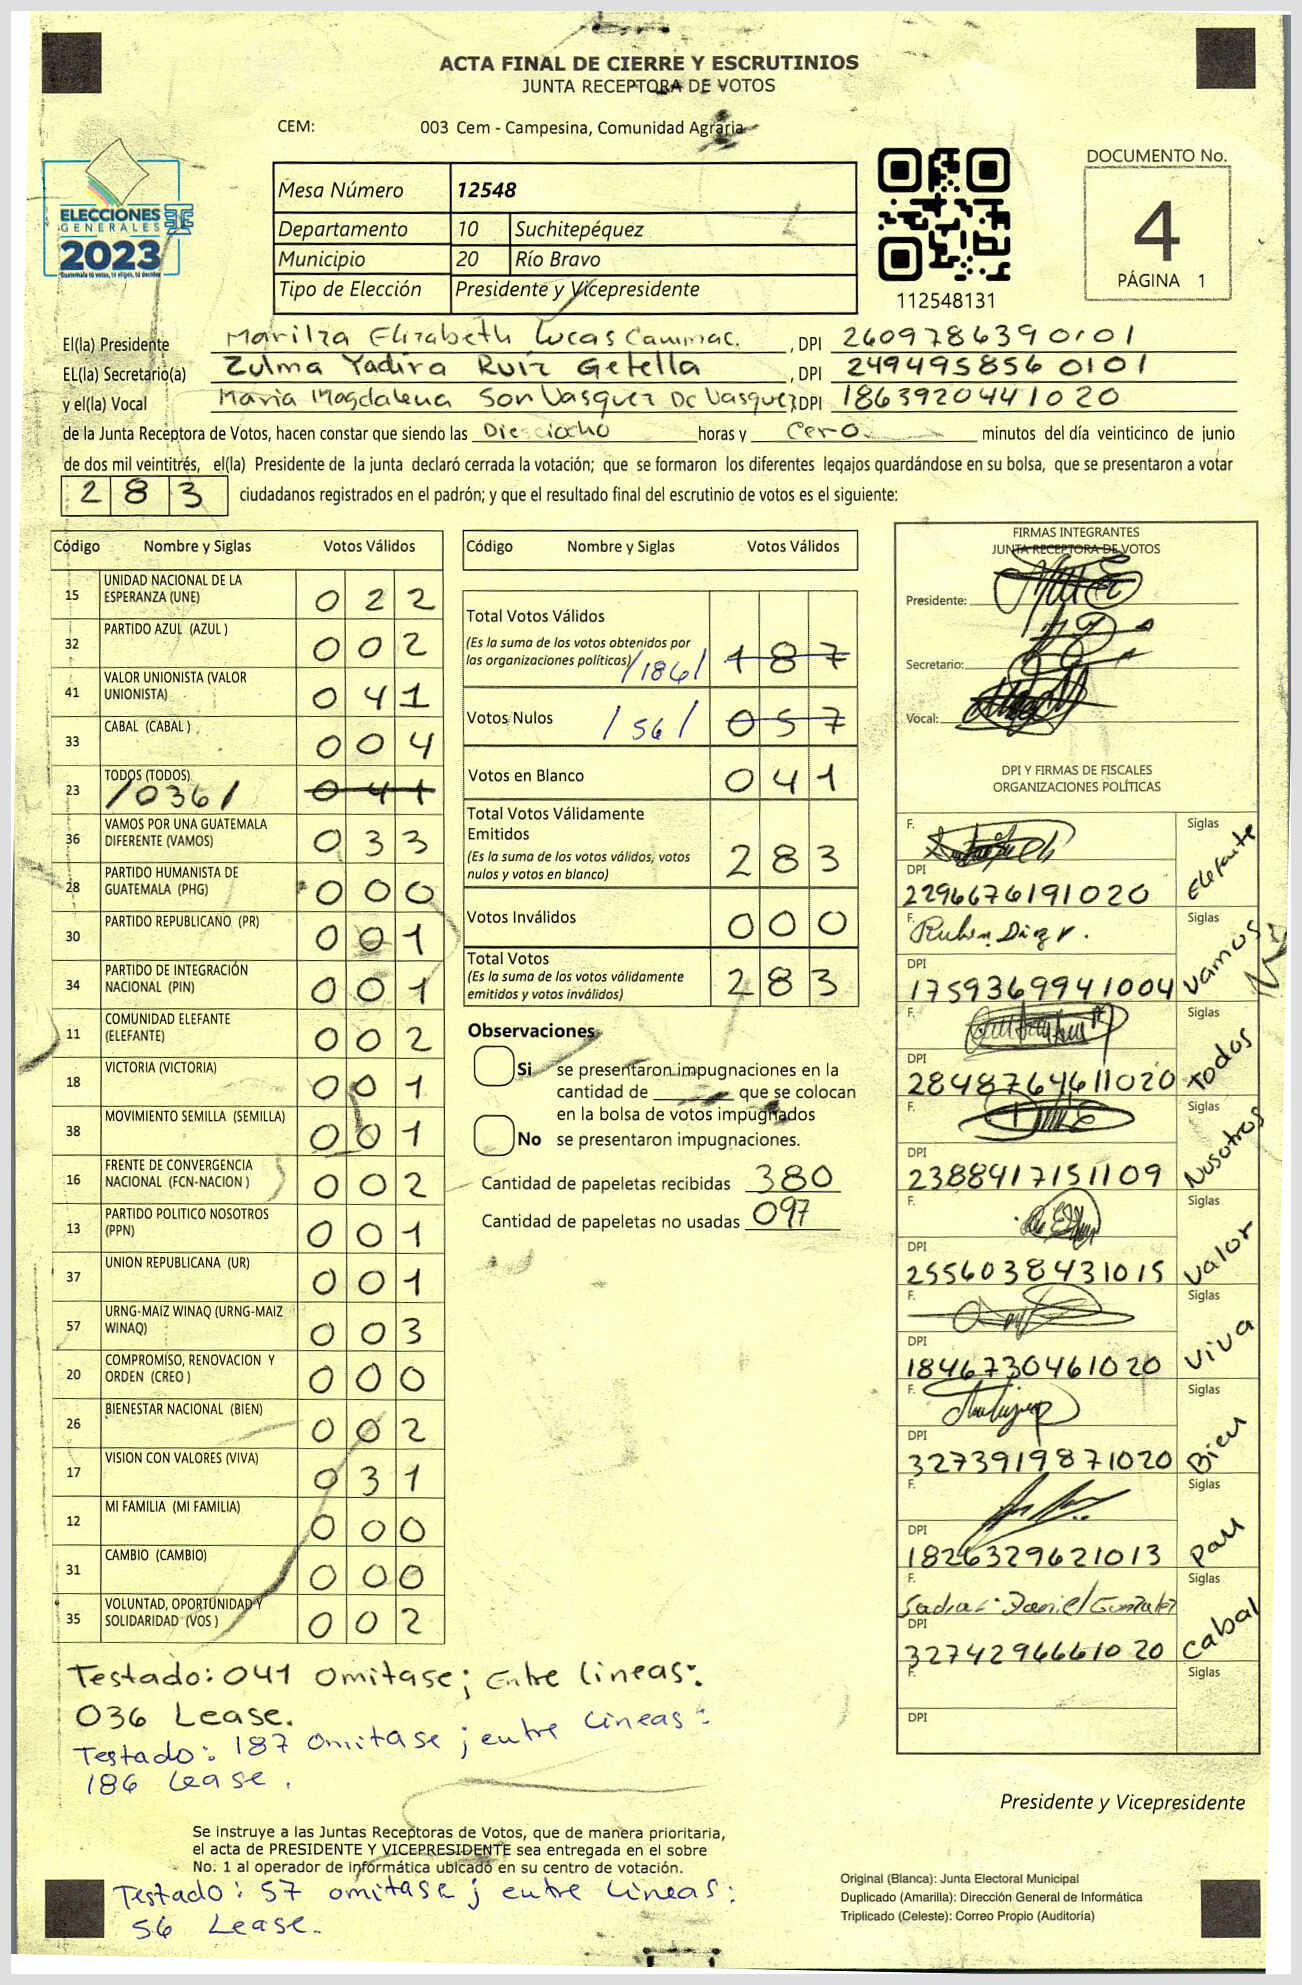 ACTA FINAL DE CIERRE Y ESCRUTINIOS
JUNTA RECEPTORA DE VOTOS
CEM: 003 Cem - Campesina, Comunidad Agraria
ELECCIONES
GENERALES
2023
Guatemala tú votas, tú eliges, tú decides
Mesa Número 12548
Departamento 10 Suchitepéquez
Municipio 20 Río Bravo
Tipo de Elección Presidente y Vicepresidente
112548131
DOCUMENTO No.
4
PÁGINA 1
El(la) Presidente Marilza Elizabeth Lucas Cammac. , DPI 2609786390101
EL(la) Secretario(a) Zulma Yadira Ruiz Getella , DPI 2494958560101
y el(la) Vocal Maria Magdalena Son Vasquez De Vasquez, DPI 1863920441020
de la Junta Receptora de Votos, hacen constar que siendo las Diesciocho horas y Cero. minutos del día veinticinco de junio
de dos mil veintitrés, el(la) Presidente de la junta declaró cerrada la votación; que se formaron los diferentes legajos quardándose en su bolsa, que se presentaron a votar
283 ciudadanos registrados en el padrón; y que el resultado final del escrutinio de votos es el siguiente:
Código Nombre y Siglas Votos Válidos
15 UNIDAD NACIONAL DE LA ESPERANZA (UNE) 022
32 PARTIDO AZUL (AZUL ) 002
41 VALOR UNIONISTA (VALOR UNIONISTA) 041
33 CABAL (CABAL ) 004
23 TODOS (TODOS) /036/ 041
36 VAMOS POR UNA GUATEMALA DIFERENTE (VAMOS) 033
28 PARTIDO HUMANISTA DE GUATEMALA (PHG) 000
30 PARTIDO REPUBLICANO (PR) 001
34 PARTIDO DE INTEGRACIÓN NACIONAL (PIN) 001
11 COMUNIDAD ELEFANTE (ELEFANTE) 002
18 VICTORIA (VICTORIA) 001
38 MOVIMIENTO SEMILLA (SEMILLA) 001
16 FRENTE DE CONVERGENCIA NACIONAL (FCN-NACION ) 002
13 PARTIDO POLITICO NOSOTROS (PPN) 001
37 UNION REPUBLICANA (UR) 001
57 URNG-MAIZ WINAQ (URNG-MAIZ WINAQ) 003
20 COMPROMISO, RENOVACION Y ORDEN (CREO ) 000
26 BIENESTAR NACIONAL (BIEN) 002
17 VISION CON VALORES (VIVA) 031
12 MI FAMILIA (MI FAMILIA) 000
31 CAMBIO (CAMBIO) 000
35 VOLUNTAD, OPORTUNIDAD Y SOLIDARIDAD (VOS ) 002
Código Nombre y Siglas Votos Válidos
Total Votos Válidos
(Es la suma de los votos obtenidos por
las organizaciones políticas) /186/ 187
Votos Nulos /56/ 057
Votos en Blanco 041
Total Votos Válidamente
Emitidos
(Es la suma de los votos válidos, votos
nulos y votos en blanco) 283
Votos Inválidos 000
Total Votos
(Es la suma de los votos válidamente
emitidos y votos inválidos) 283
Observaciones
Si se presentaron impugnaciones en la
cantidad de que se colocan
en la bolsa de votos impugnados
No se presentaron impugnaciones.
Cantidad de papeletas recibidas 380
Cantidad de papeletas no usadas 097
FIRMAS INTEGRANTES
JUNTA RECEPTORA DE VOTOS
Presidente:
Secretario:
Vocal:
DPI Y FIRMAS DE FISCALES
ORGANIZACIONES POLÍTICAS
F. Siglas Elefante
DPI
2296676191020
F. Ruben Diaz Siglas Vamos
DPI
1759369941004
F. Siglas Todos
DPI
2848764611020
F. Siglas Nosotros
DPI
2388417151109
F. Siglas Valor
DPI
2556038431015
F. Siglas Viva
DPI
1846730461020
F. Siglas Bien
DPI
3273919871020
F. Siglas pan
DPI
1826329621013
F. Daniel Siglas Cabal
DPI
3274296661020
F. Siglas
DPI
Testado: 041 omitase; Entre lineas:
036 Lease.
Testado: 187 omitase; entre lineas:
186 Lease.
Presidente y Vicepresidente
Se instruye a las Juntas Receptoras de Votos, que de manera prioritaria,
el acta de PRESIDENTE Y VICEPRESIDENTE sea entregada en el sobre
No. 1 al operador de informática ubicado en su centro de votación.
Testado: 57 omitase; entre lineas:
56 Lease.
Original (Blanca): Junta Electoral Municipal
Duplicado (Amarilla): Dirección General de Informática
Triplicado (Celeste): Correo Propio (Auditoría)